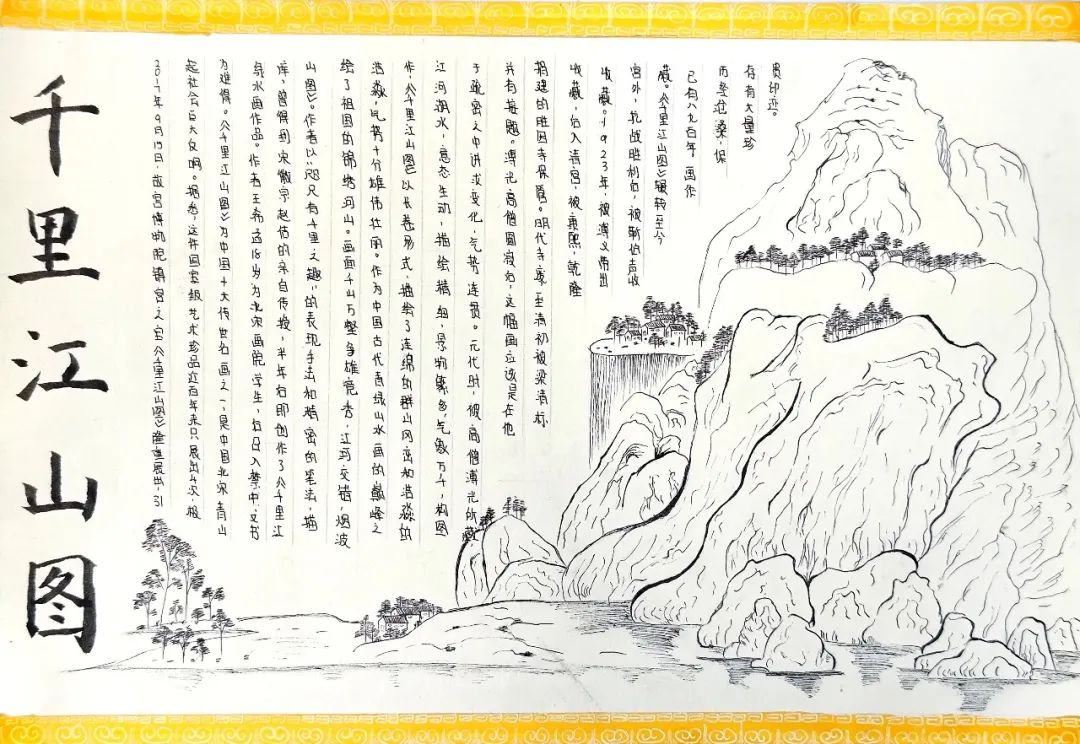 千里江山图
2017年9月15日,故宫博物院镇宫之宝《千里江山图》隆重展出,引
起社会巨大反响。据悉,这件国宝级艺术珍品近百年来只展出4次,极
为难得。《千里江山图》为中国十大传世名画之一,是中国北宋青山
绿水画作品。作者王希孟18岁为北宋画院学生,日入禁中文书
库,曾得到宋徽宗赵佶的亲自传授,半年后即创作了《千里江
山图》。作者以“咫尺有千里之趣”的表现手法和精密的笔法,描
绘了祖国的锦绣河山。画面千山万壑争雄竞秀,江河交错,烟波
浩淼,气势十分雄伟壮阔。作为中国古代青绿山水画的巅峰之
作,《千里江山图》以长卷形式,描绘了连绵的群山冈峦和浩淼的
江河湖水,意态生动,描绘精细,景物繁多,气象万千,构图
于疏密之中讲求变化,气势连贯。元代时,被高僧溥光所藏
并有跋题。溥光高僧圆寂后,这幅画应该是在他
捐建的胜因寺保留。明代寺废至清初被梁清标
收藏,后入清宫,被康熙,乾隆
收藏。1923年,被溥义带出
宫外,抗战胜利后,被靳伯声收
藏。《千里江山图》辗转至今
已有八九百年 画作
历尽沧桑,保
存有大量珍
贵印迹。